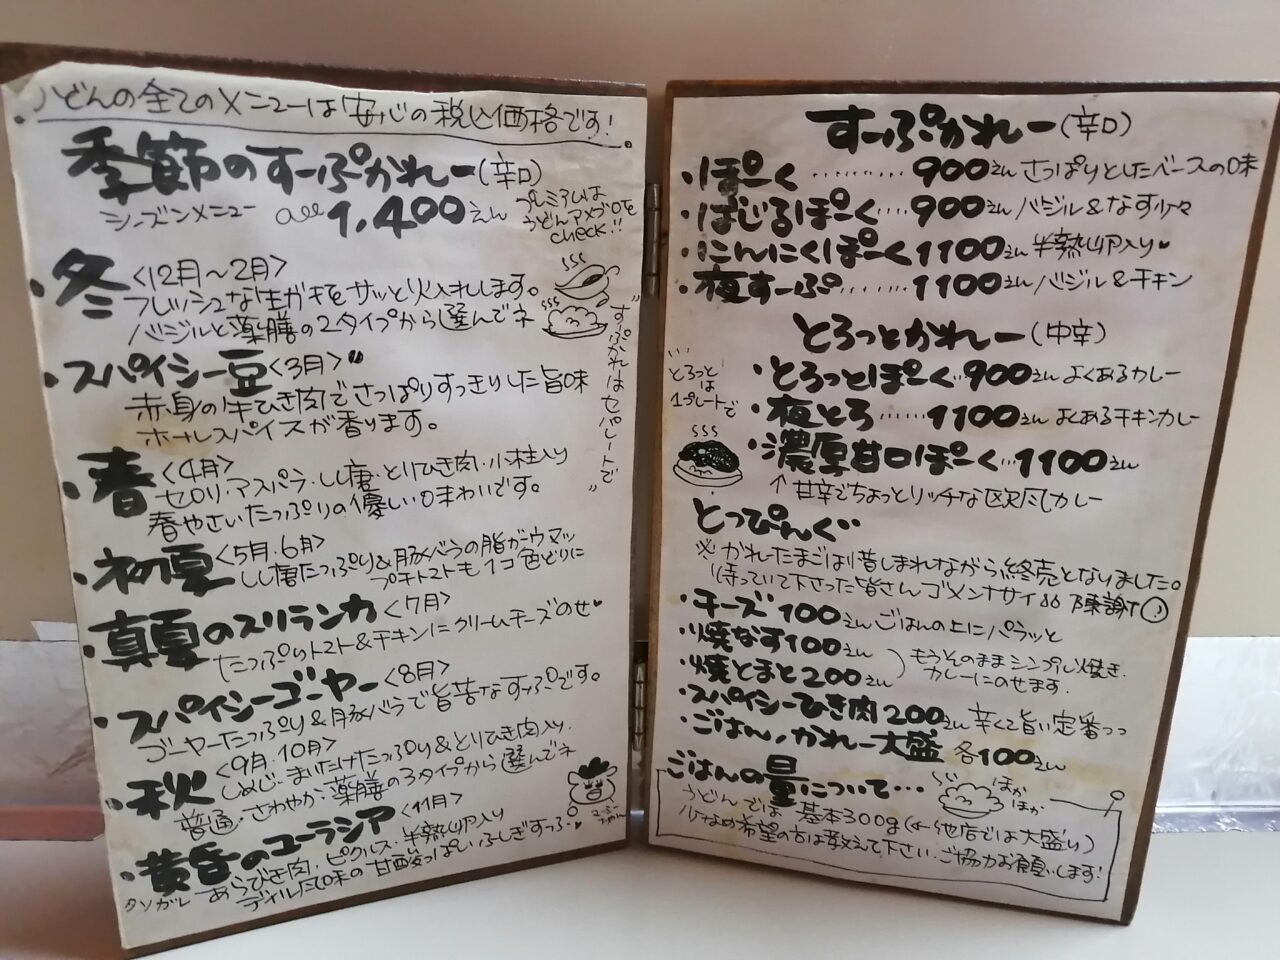 うどんの全てのメニューは安心の税込価格です!
季節のすーぷかれー(辛口)
シーズンメニュー all 1,400えん
プレミアムは
うどんアメブロを
check!!
・冬<12月〜2月>
フレッシュな生ガキをサッと火入れします。
バジルと薬膳の2タイプから選んでネ
・スパイシー豆<3月>
赤身の牛ひき肉でさっぱりすっきりした旨味
ホールスパイスが香ります。
・春<4月>
セロリ・アスパラ・しし唐・とりひき肉・小柱入り
春やさいたっぷりの優しい味わいです。
・初夏<5月・6月>
しし唐たっぷり&豚バラの脂がウマッ
プチトマトも1コ色どりに
・真夏のスリランカ<7月>
たっぷりトマト&チキンにクリームチーズのせ♥
・スパイシーゴーヤー<8月>
ゴーヤーたっぷり&豚バラで旨苦なすっぷです。
・秋<9月・10月>
しめじ・まいたけたっぷり&とりひき肉入り.
普通・さわやか・薬膳の3タイプから選んでネ
・黄昏のユーラシア<11月>
タソガレ あらびき肉・ピクルス・半熟卵入り
ディルたし味の甘酸っぱいふしぎすっぷ♥
"すっぷかれーはセパレートで"
すーぷかれー(辛口)
・ぽーく………900えん さっぱりとしたベースの味
・ばじるぽーく…900えん バジル&なす少々
・にんにくぽーく1100えん 半熟卵入り♥
・夜すーぷ……1100えん バジル&チキン
とろっとかれー(中辛)
とろっと
は
1プレートで
・とろっとぽーく…900えん よくあるカレー
・夜とろ……1100えん よくあるチキンカレー
・濃厚甘口ぽーく…1100えん
↑甘辛でちょっとリッチな欧風カレー
とっぴんぐ
※かれーたまごは惜しまれながら終売となりました。
(待っていて下さった皆さんゴメンナサイ&陳謝)
・チーズ100えん ごはんの上にパラッと
・焼なす100えん
・焼とまと200えん
もうそのままシンプルに焼き.
カレーにのせます.
・スパイシーひき肉200えん 辛くて旨い定番っっ
・ごはん、かれー大盛 各100えん
ごはんの量について…
ほか
ほか
うどんでは 基本300g(←他店では大盛り)
少なめ希望の方は教えて下さい.ご協力お願いします!